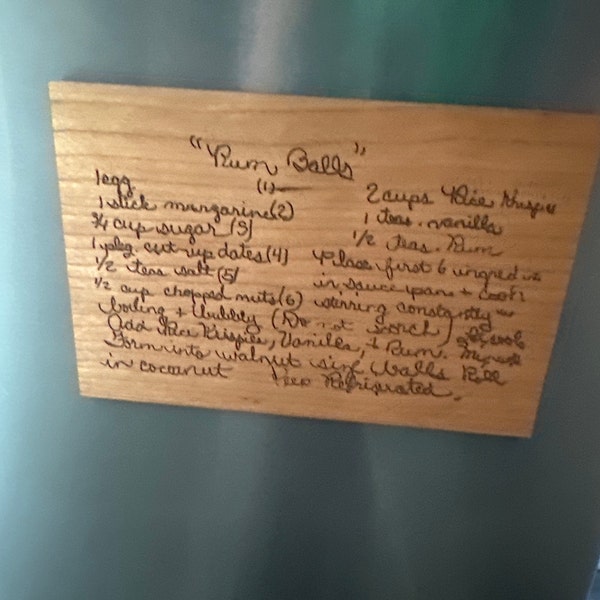 "Rum Balls"
1 egg (1)
1 stick margarine (2)
3/4 cup sugar (3)
1 pkg. cut-up dates (4)
1/2 teas salt (5)
1/2 cup chopped nuts (6)
2 cups Rice Krispies
1 teas. vanilla
1/2 teas. Rum
Place first 6 ingred
in sauce pan + cook
stirring constantly
boiling + bubbly (Do not scorch)
Add Rice Krispies, Vanilla, + Rum.
Form into walnut size balls Roll
in cocoanut Keep Refrigerated.